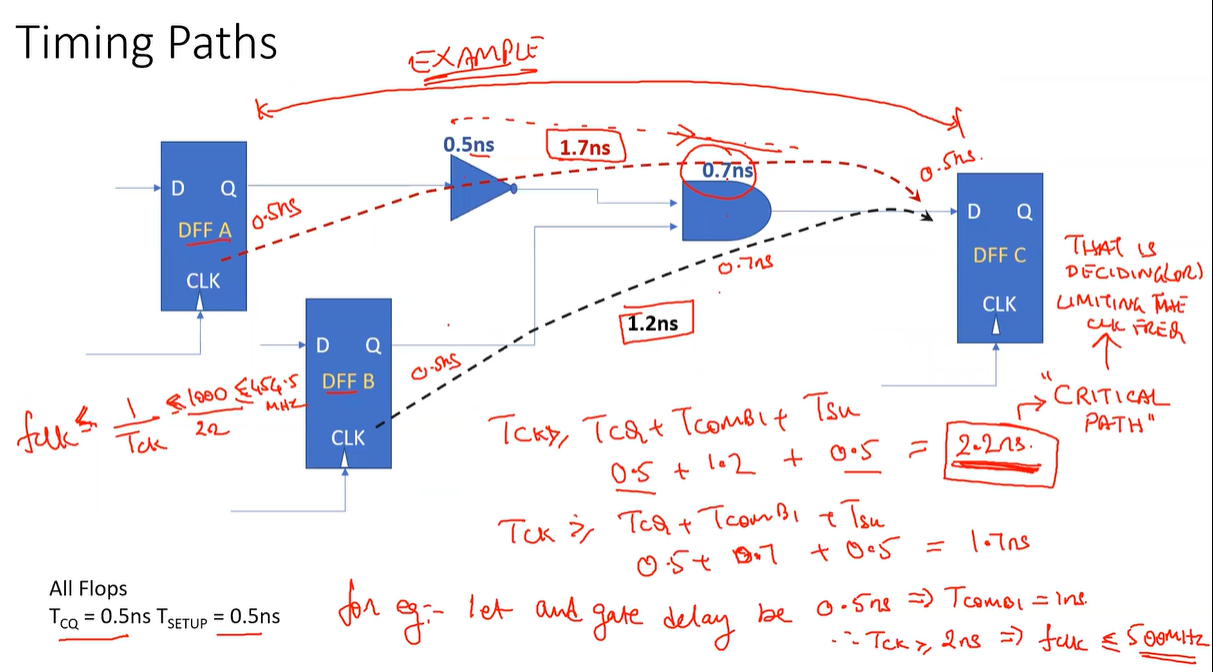 Timing Paths
EXAMPLE
0.5ns
1.7ns
0.7ns
0.5ns.
D Q
DFF A
CLK
0.5ns
D Q
DFF C
CLK
THAT IS
DECIDING(OR)
LIMITING THE
CLK FREQ
0.7ns
1.2ns
D Q
DFF B
CLK
0.5ns
fclk ≤ 1/Tck ≤ 1000/2.2 ≤ 454.5 MHz
"CRITICAL
PATH"
TCK ≥ TCQ + TCOMBI + TSU
0.5 + 1.2 + 0.5 = 2.2ns.
TCK ≥ TCQ + TCOMBI + TSU
0.5 + 0.7 + 0.5 = 1.7ns
All Flops
TCQ = 0.5ns TSETUP = 0.5ns
for eg:- let and gate delay be 0.5ns ⇒ TCOMBI = 1ns.
∴ TCK ≥ 2ns ⇒ fclk ≤ 500MHz